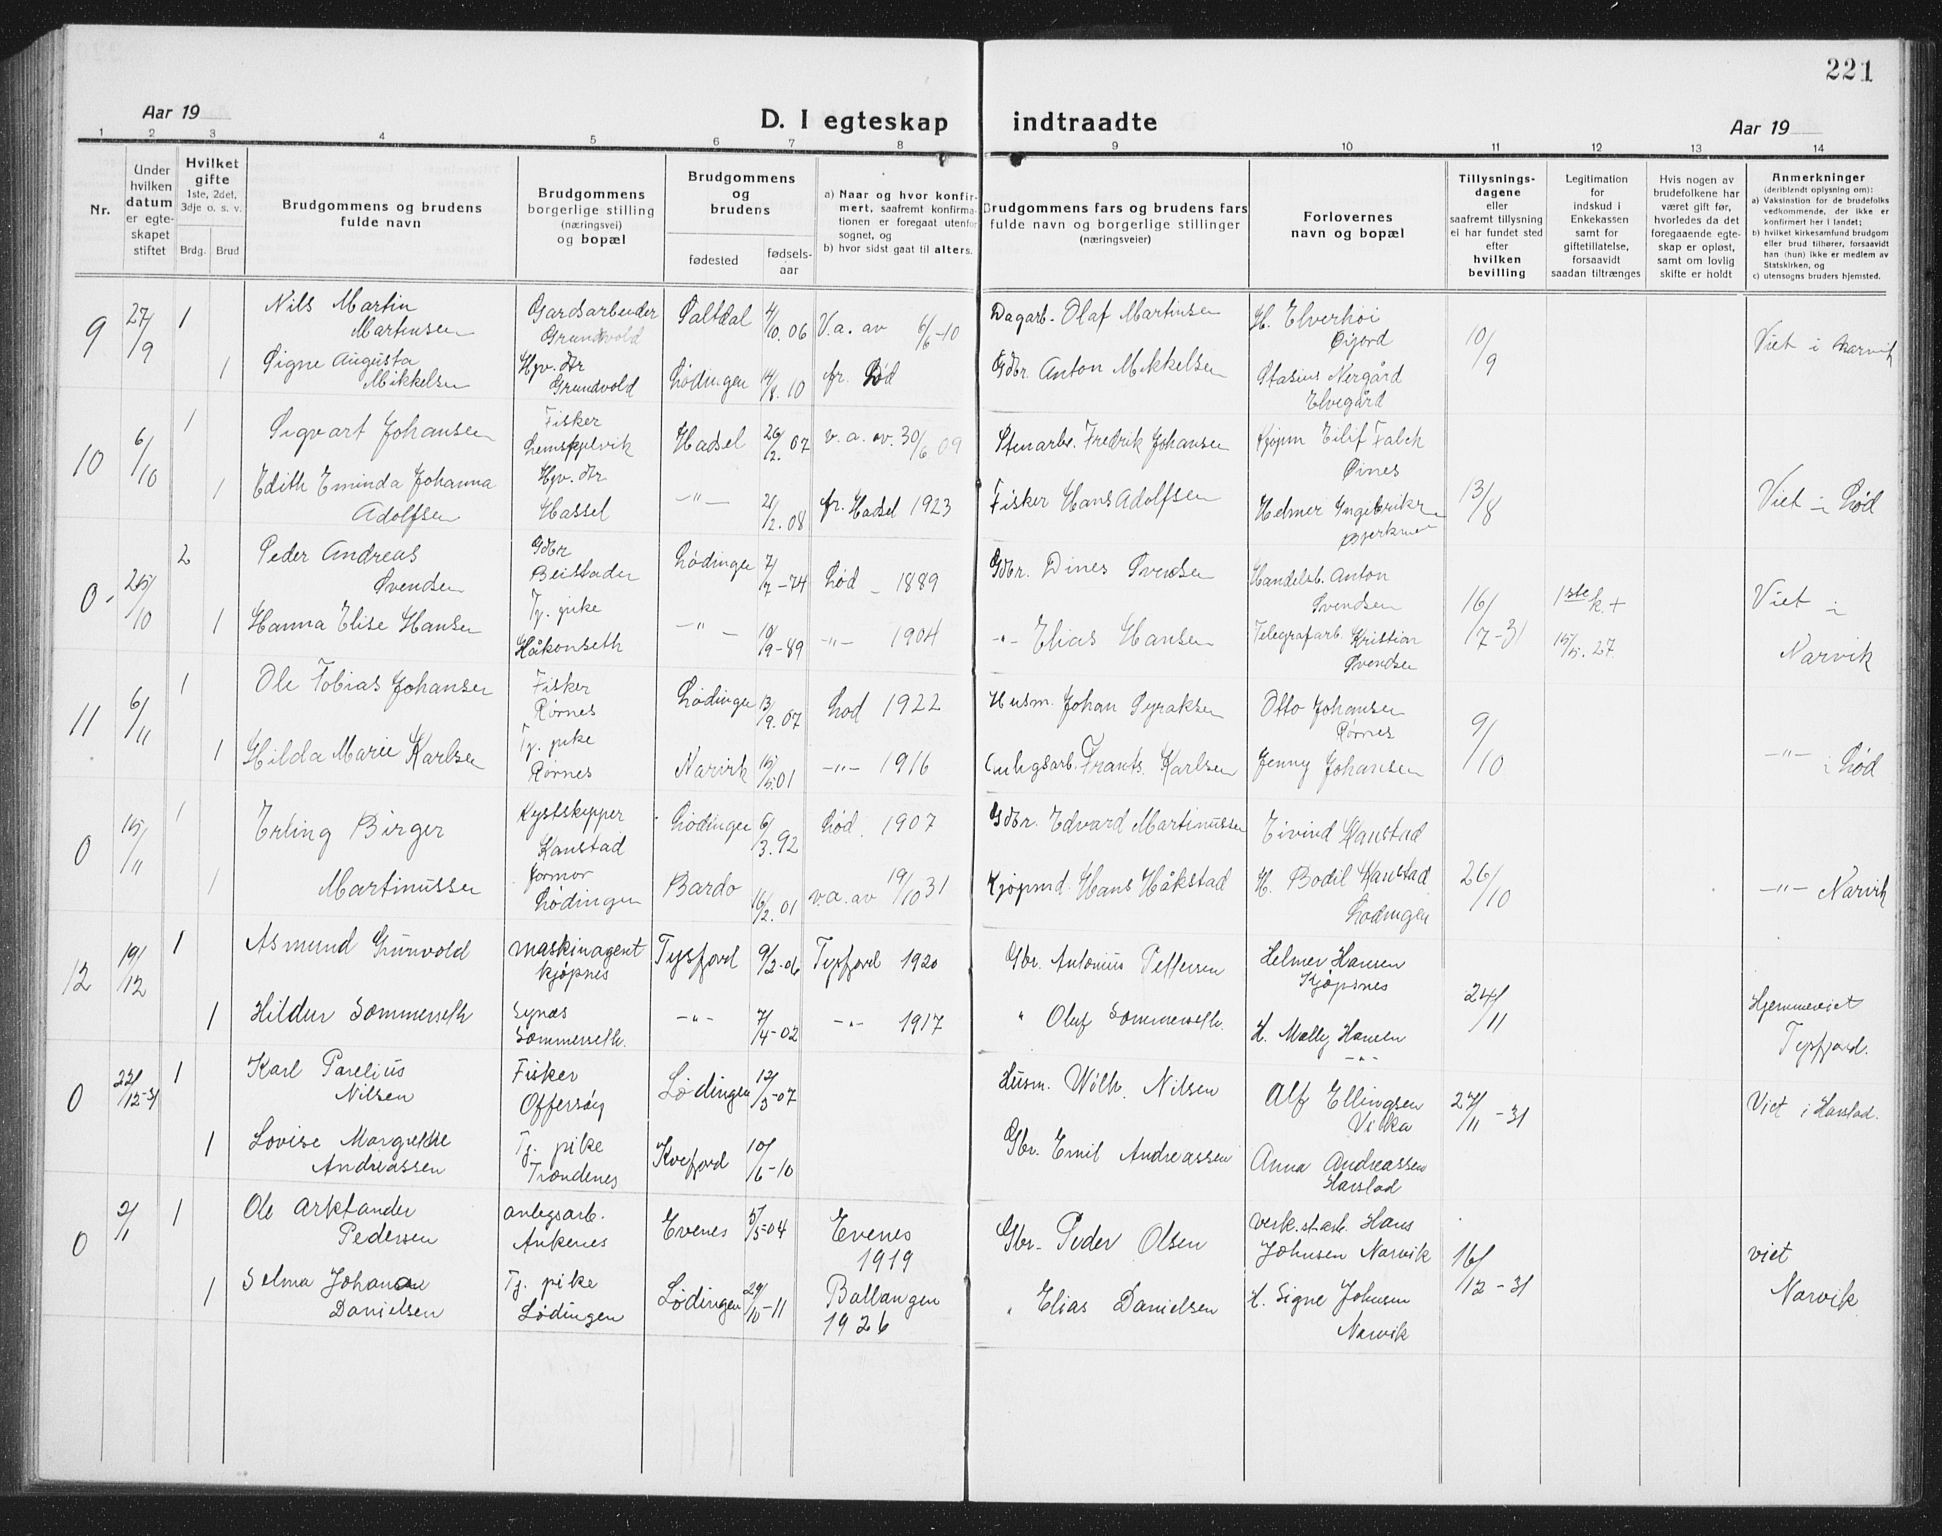 221
Aar 19
D. I egteskap indtraadte
Aar 19
1 2 3 4 5 6 7 8 9 10 11 12 13 14
Nr.
Under
hvilken
datum
er egte-
skapet
stiftet
Hvilket
gifte
1ste, 2det,
3dje o. s. v.
Brdg. Brud
Brudgommens og brudens
fulde navn
Brudgommens
borgerlige stilling
(næringsvei)
og bopæl
Brudgommens
og
brudens
fødested
fødsels-
aar
a) Naar og hvor konfir-
mert, saafremt konfirma-
tionen er foregaat utenfor
sognet, og
b) hvor sidst gaat til alters.
Brudgommens fars og brudens fars
fulde navn og borgerlige stillinger
(næringsveier)
Forlovernes
navn og bopæl
Tillysnings-
dagene
eller
saafremt tillysning
ei har fundet sted
efter
hvilken
bevilling
Legitimation
for
indskud i
Enkekassen
samt for
giftetillatelse,
forsaavidt
saadan tiltrænges
Hvis nogen av
brudefolkene har
været gift før,
hvorledes da det
foregaaende egte-
skap er opløst,
samt om lovlig
skifte er holdt
Anmerkninger
(deriblandt oplysning om):
a) Vaksination for de brudefolks
vedkommende, der ikke er
konfirmert her i landet;
b) hvilket kirkesamfund brudgom
eller brud tilhører, forsaavidt
han (hun) ikke er medlem av
Statskirken, og
c) utensogns bruders hjemsted.
9 27/9 1 Nils Martin Martinsen Gardsarbeider Grundvold Saltdal 4/10.06 V.a. av 6/6-10 Dagarb. Olaf Martinsen H. Elverhøi Øijord 10/9 Viet i Narvik
1 Signe Augusta Mikkelsen Hyv. dtr Grundvold Lødingen 14/8.10 fr. Lød Gdbr. Anton Mikkelsen Stasius Nergård Elvegård
10 6/10 1 Sigvart Johansen Fisker Hadsel 26/2.07 v.a. av. 30/6 09 Stenarb. Fredrik Johansen Kjøpm Eilif Falch Øines 13/8 Viet i Lød
1 Edith Eminda Johanna Adolfsen Hyv. dtr Hassel -"- 21/2.08 fr. Hadsel 1923 Fisker Hans Adolfsen Helmer
0 25/10 2 Peder Andreas Svendsen Gdbr Lødingen 7/7-74 Lød - 1889 Gdbr. Dines Svendsen Handelsb. Anton Svendsen 16/7-31 1ste k + 15/5.27 Viet i Narvik
1 Hanna Elise Hansen Tj. pike Håkonseth -"- 10/9-89 -"- 1904 -"- Elias Hansen Telegrafarb. Kristian Svendsen
11 6/11 1 Ole Tobias Johansen Fisker Rørnes Lødingen 13/9.07 Lød 1922 Husm. Johan Syraksen Otto Johansen Rørnes 9/10 -"- i Lød
1 Hilda Marie Karlsen Tj. pike Rørnes Narvik 15/5.01 -"- 1916 Anlegsarb. Frants Karlsen Jenny Johansen
0 15/11 1 Erling Birger Kystskipper Kanstad Lødingen 6/3.92 Lød. 1907 Gdbr. Edvard Martinussen Eivind Kanstad 26/10 -"- Narvik
1 Martinussen Jormor Lødingen Bardo 16/2.01 v.a. av 19/10 31 Kjøpmd. Hans Håkstad H. Bodil Kanstad Lødingen
12 19/12 1 Asmund Gunvold maskinagent Kjøpnes Tysfjord 9/2-06 Tysfjord 1920 Gbr. Antonius Pettersen Helmer Hansen Kjøpsnes 24/11 Hjemmeviet Tysfjord.
1 Hildur Sommerseth Synæs Sommerseth. -"- 7/4-02 -"- 1917 " Oluf Sommerseth. H. Mally Hansen -"-
0 22/12-31 1 Karl Parelius Nilsen Fisker Offersøy Lødingen 12/3-07 Husm. Wilh. Nilsen Alf Ellingsen Vilka 27/11-31 Viet i Harstad.
1 Lovise Margrethe Andreassen Tj. pike Trondenes Kvefjord 10/6-10 Gbr. Emil Andreassen Anna Andreassen Harstad
0 2/1 1 Ole Arktander Pedersen anlegsarb. Ankenes Evenes 5/5-04 Evenes 1919 Gbr. Peder Olsen Verk.st.arb. Hans Johnsen Narvik 16/12-31 viet Narvik
1 Selma Johanne Danielsen Tj. pike Lødingen Lødingen 29/10-11 Ballangen 1926 " Elias Danielsen H. Signe Johnsen Narvik